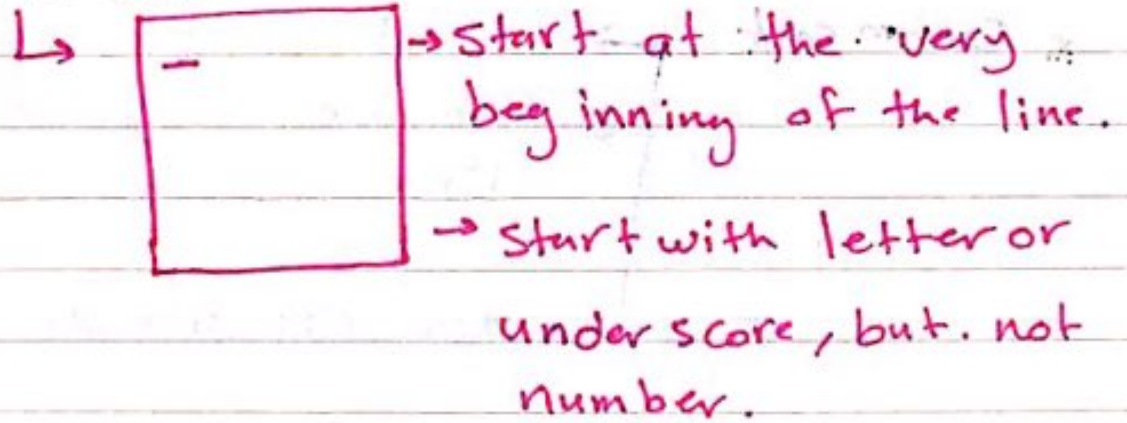 ↳ → start at the very
beginning of the line.
→ start with letter or
underscore, but. not
number.